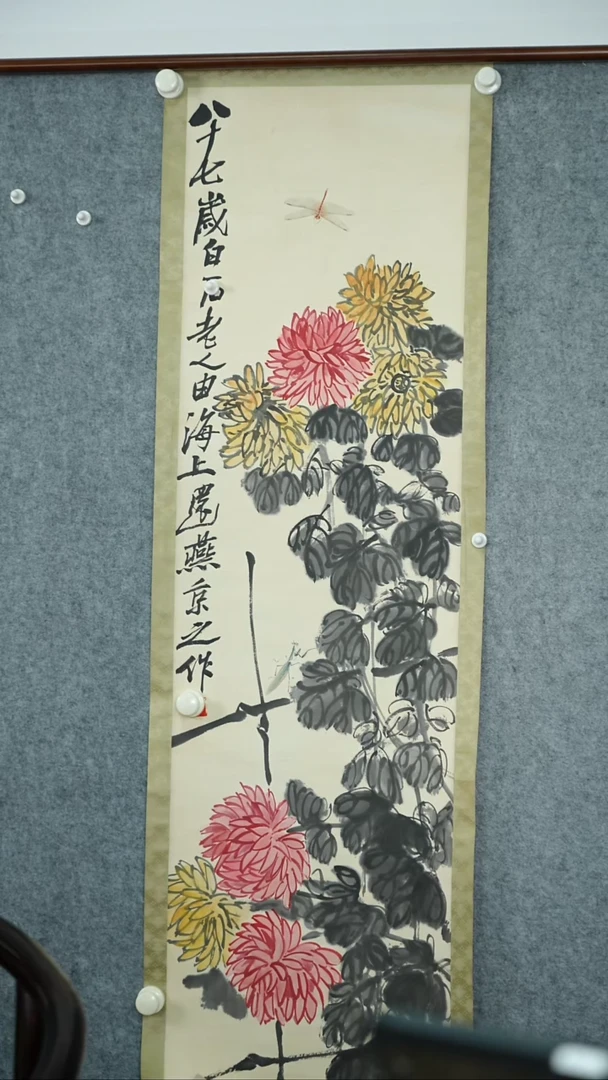 八十七歲白石老人由海上還燕京之作